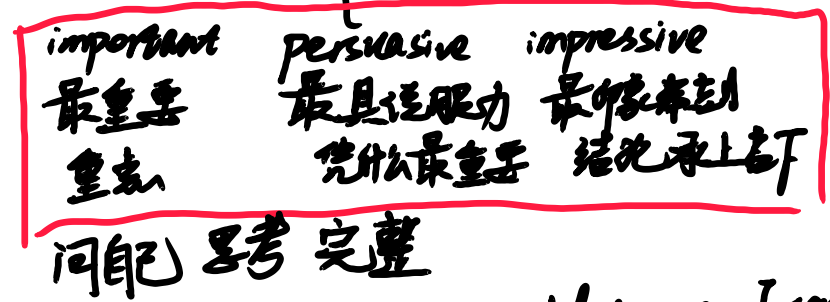 important persuasive impressive
最重要 最具说服力 最印象深刻
重点 凭什么最重要 结论承上启下
问自己 思考 完整